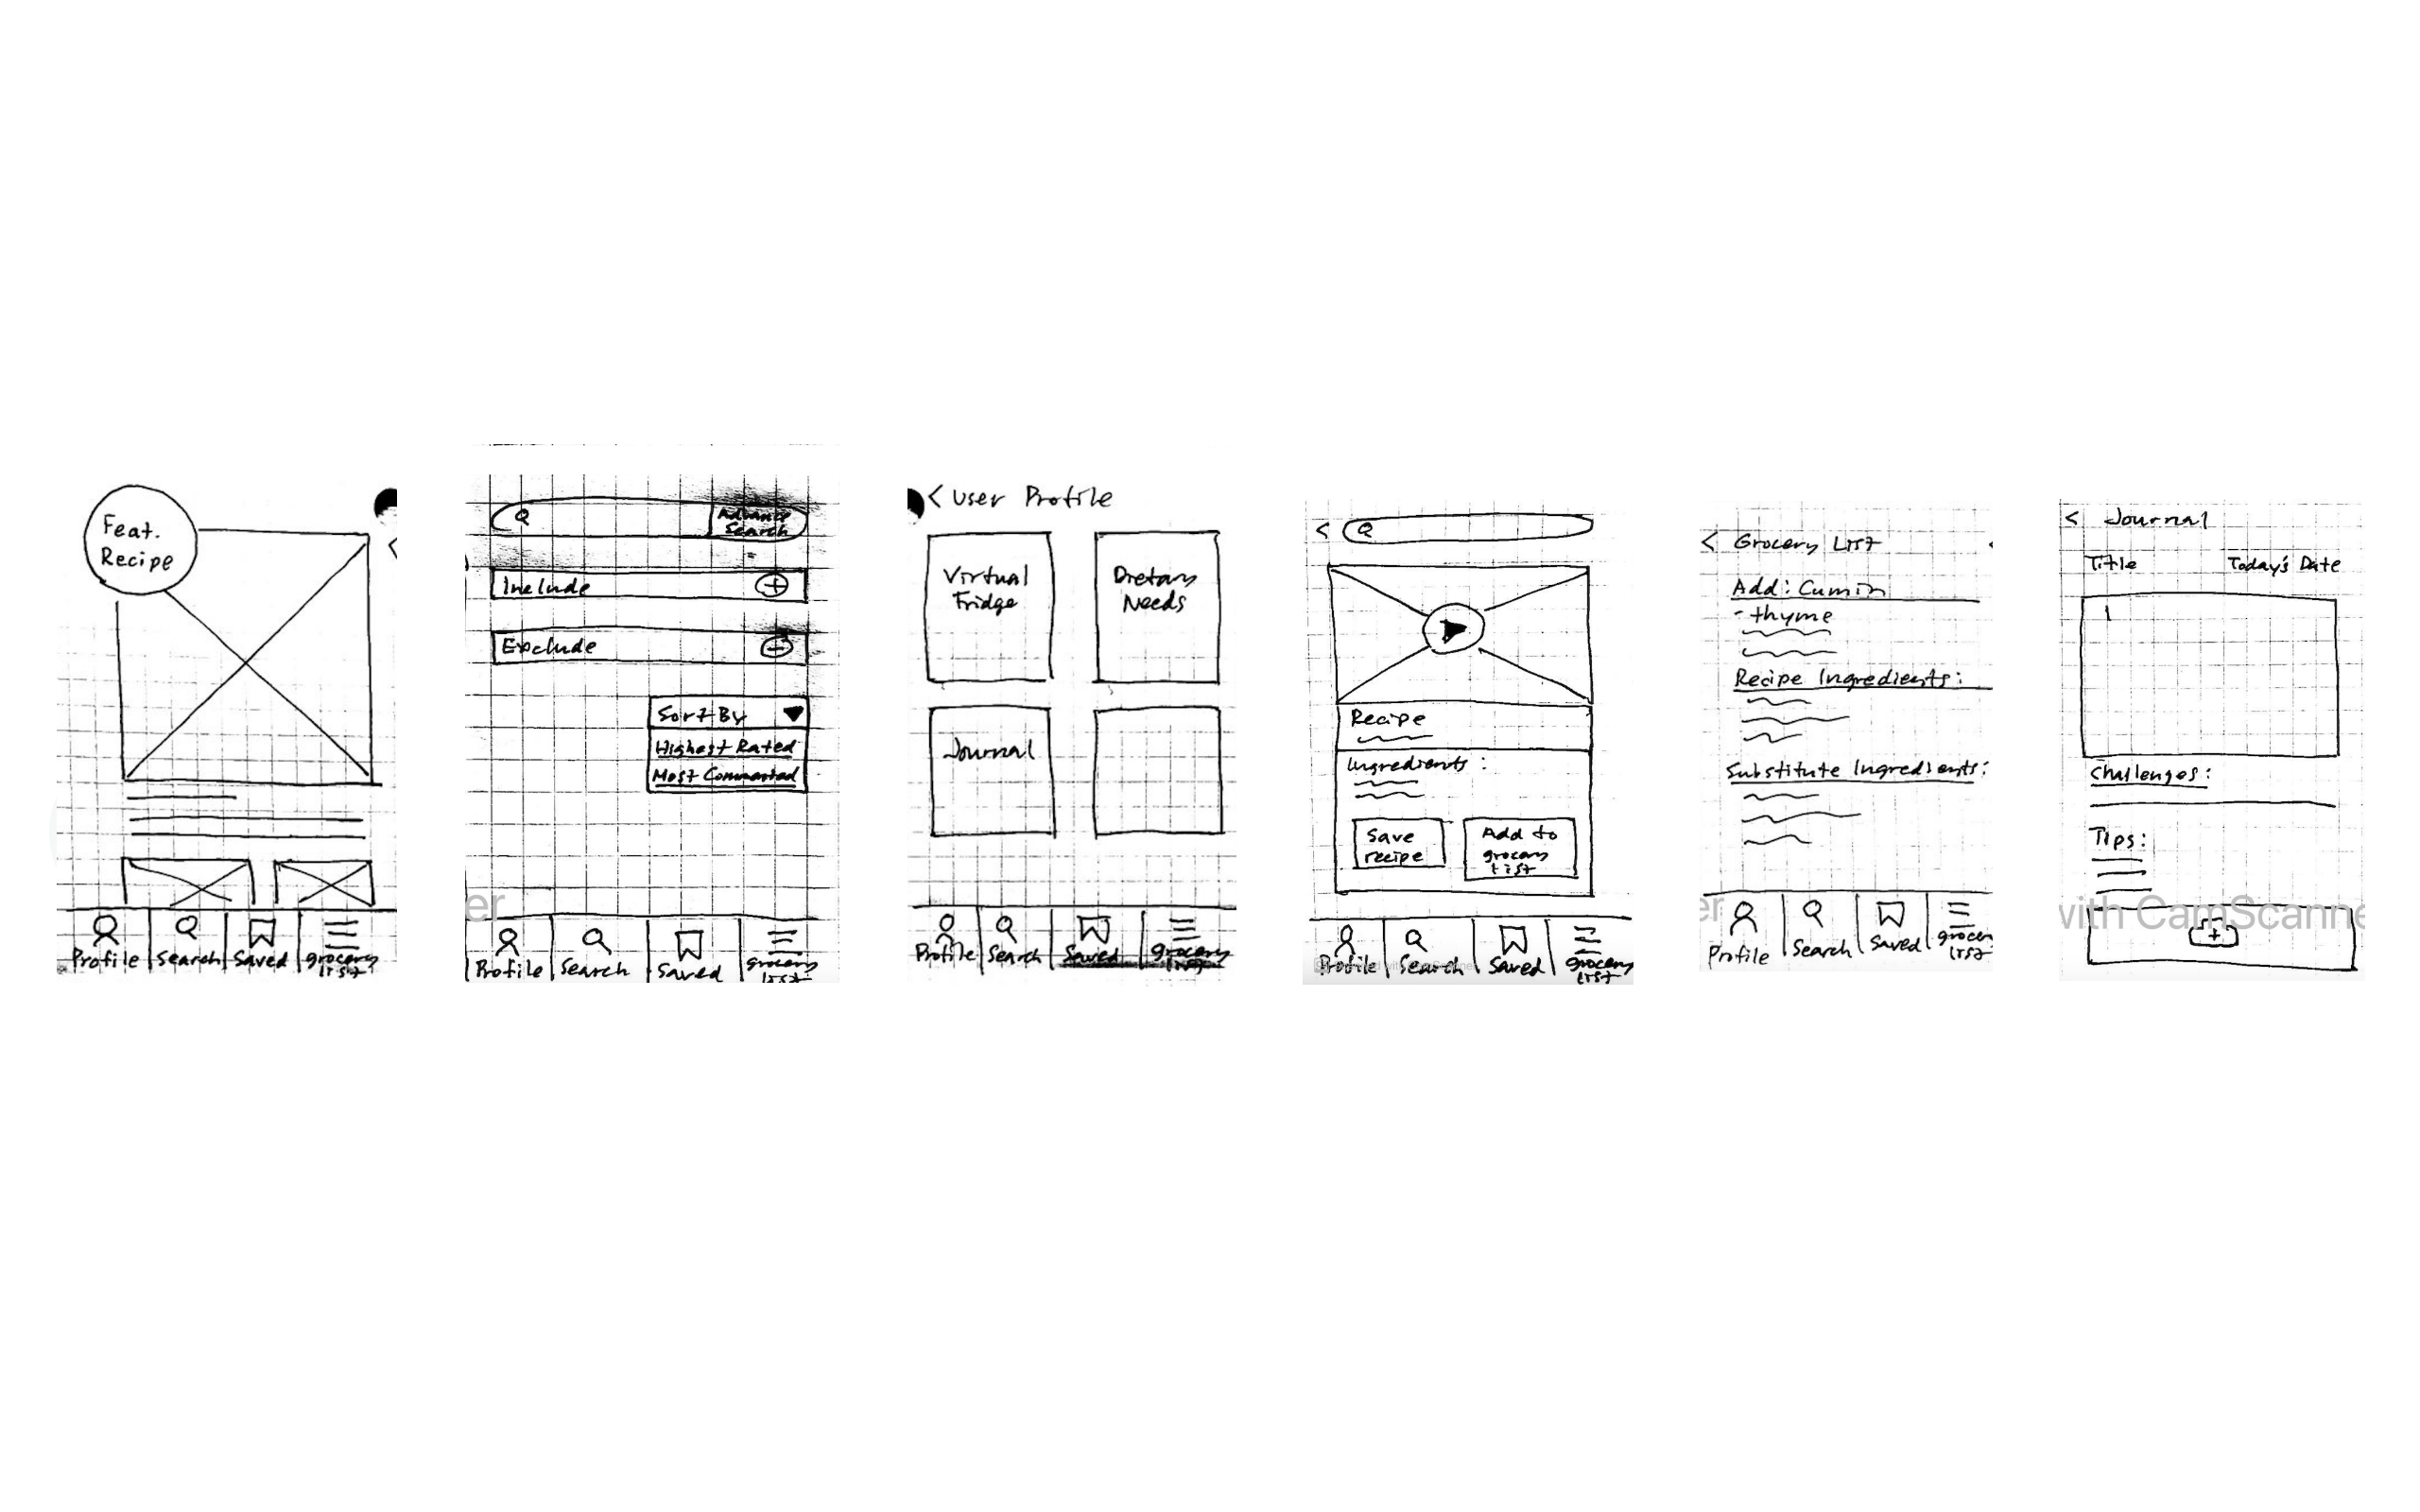 Feat.
Recipe
Profile
Search
Saved
grocery
list
Advance
Search
Include
Exclude
Sort By
Highest Rated
Most Commented
er
Profile
Search
Saved
grocery
list
< User Profile
Virtual
Fridge
Dietary
Needs
Journal
Profile
Search
Saved
grocery
list
<
Recipe
Ingredients :
Save
recipe
Add to
grocery
list
Profile
Search
Saved
grocery
list
< Grocery List
Add: Cumin
- thyme
Recipe Ingredients:
Substitute Ingredients:
er
Profile
Search
Saved
grocery
list
< Journal
Title Today's Date
Challenges:
Tips:
with CamScanne